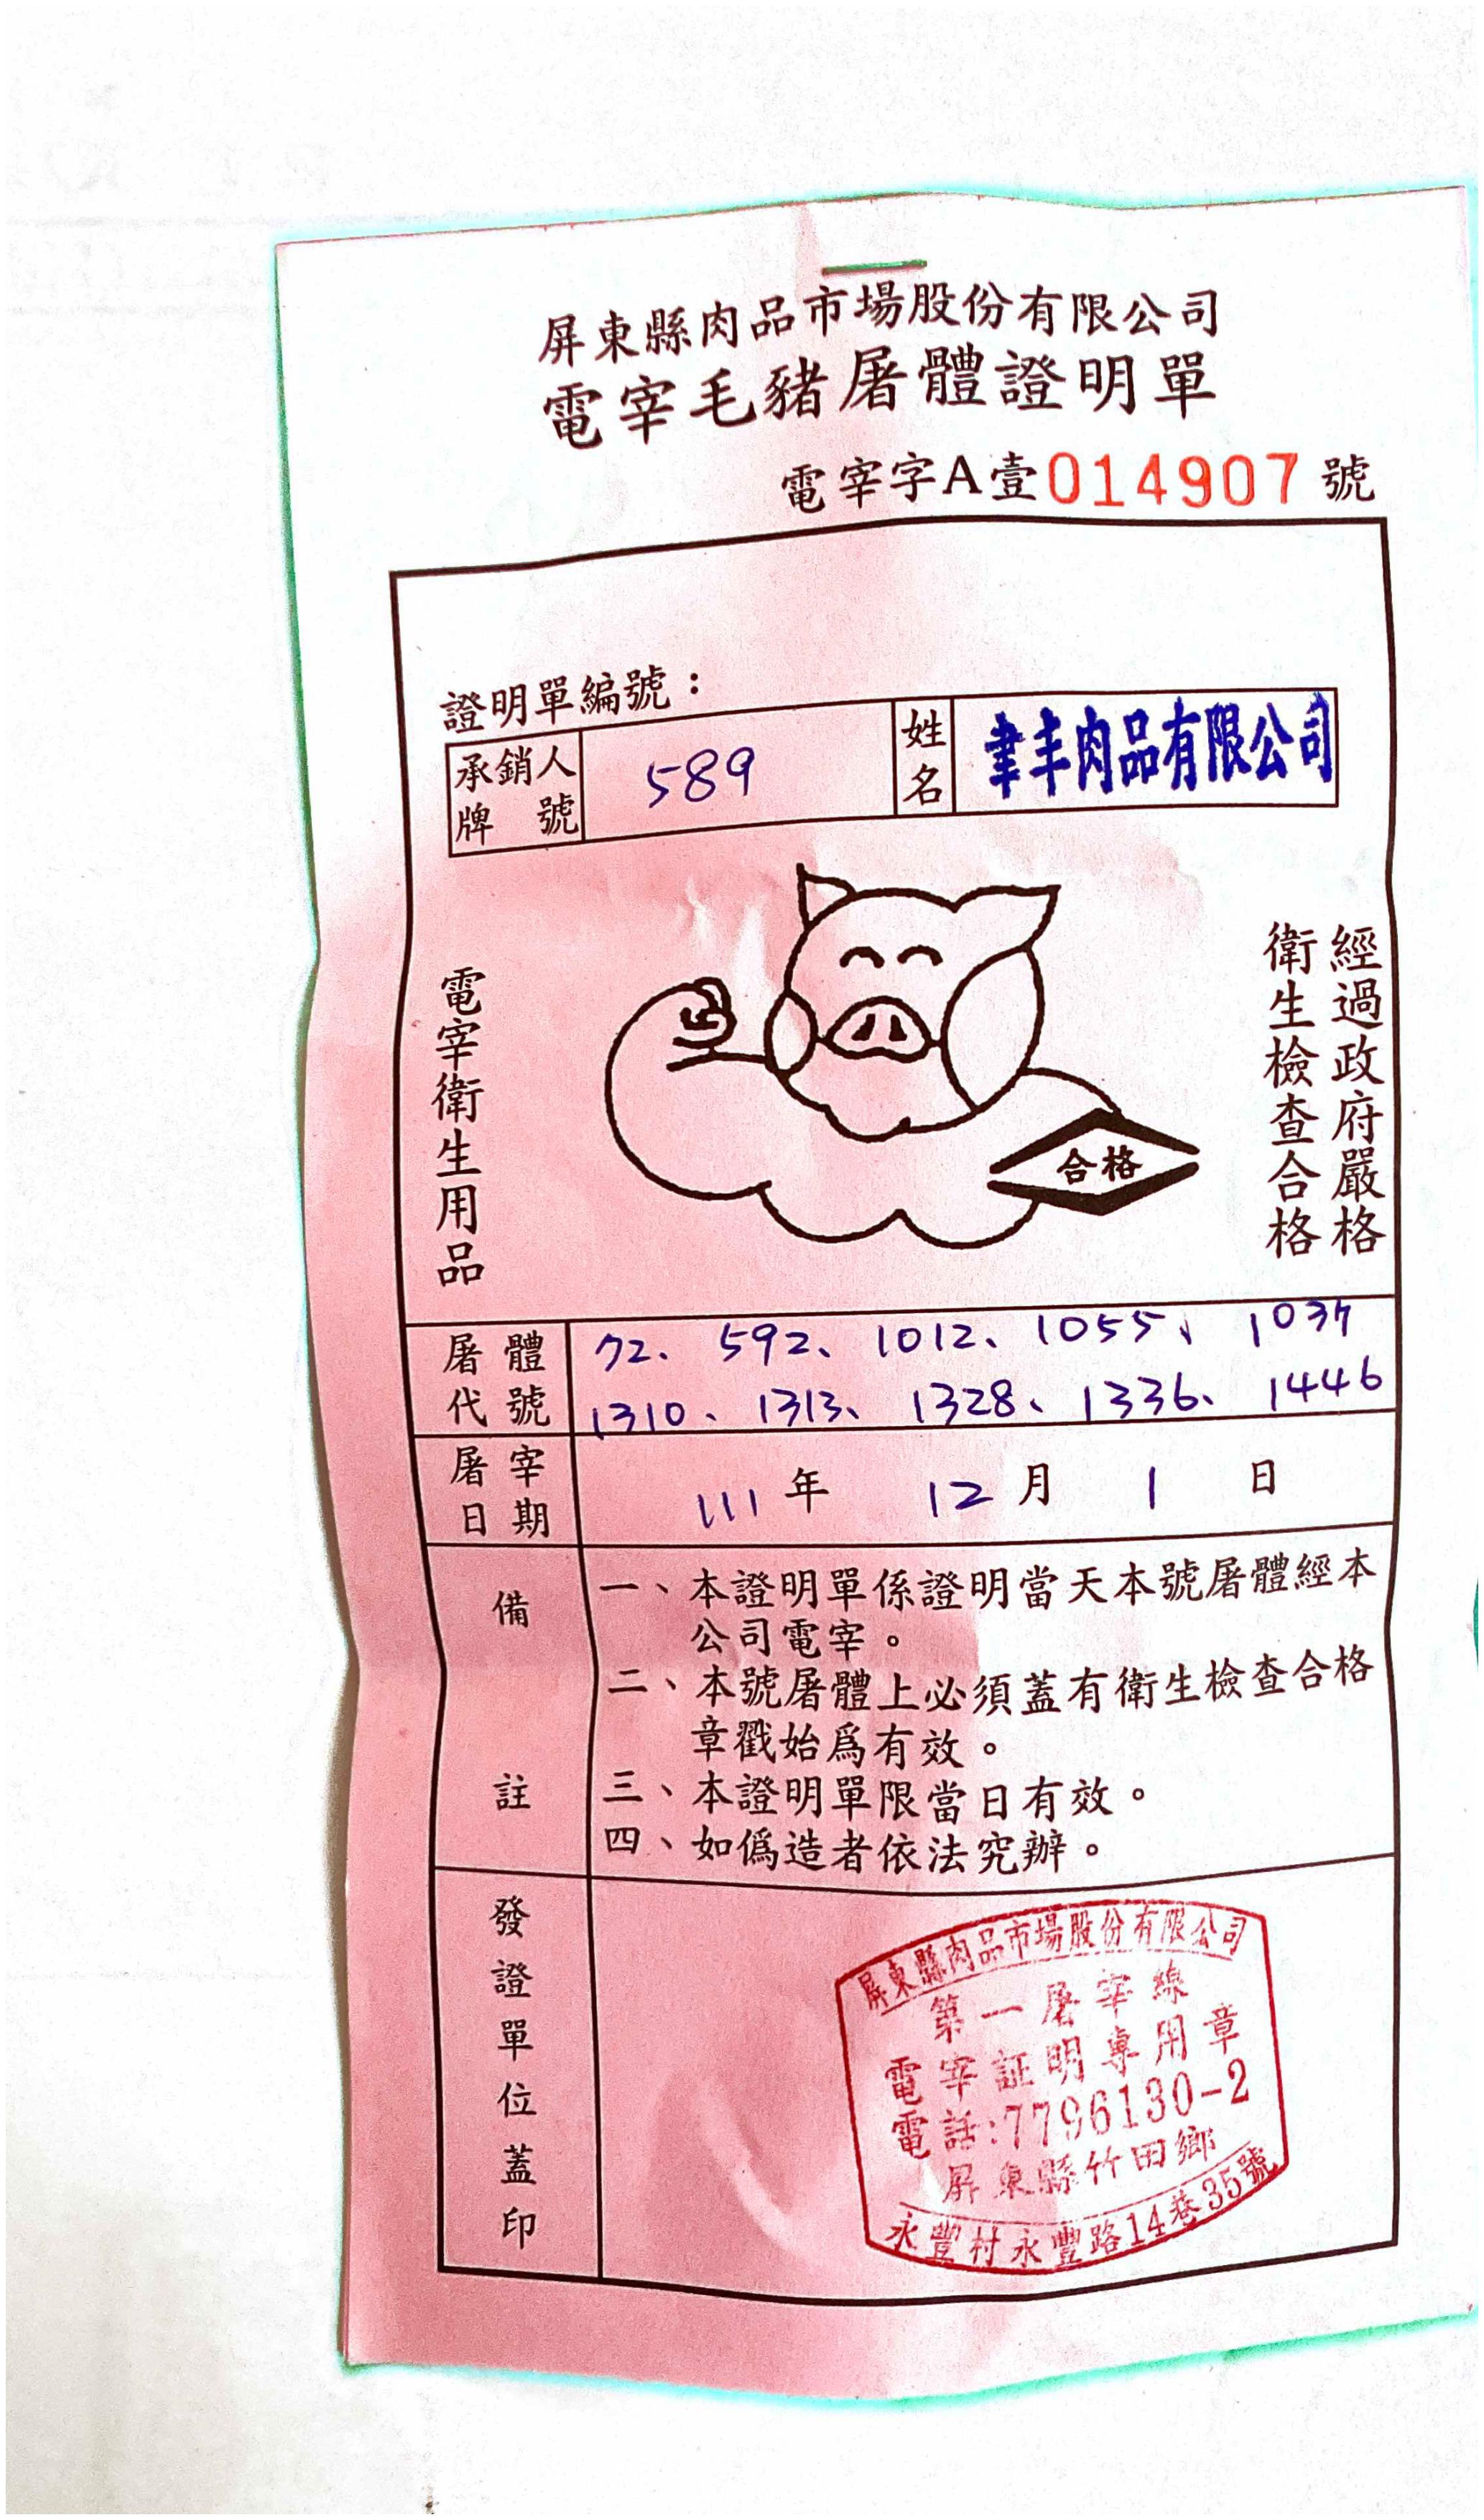 屏東縣肉品市場股份有限公司
電宰毛豬屠體證明單
電宰字A壹014907號
證明單編號：
承銷人牌號
589
姓名
聿丰肉品有限公司
電宰衛生用品
合格
經過政府嚴格
衛生檢查合格
屠體代號
72、592、1012、1055、1037
1310、1313、1328、1336、1446
屠宰日期
111年12月1日
備註
一、本證明單係證明當天本號屠體經本
公司電宰。
二、本號屠體上必須蓋有衛生檢查合格
章戳始爲有效。
三、本證明單限當日有效。
四、如偽造者依法究辦。
發證單位蓋印
屏東縣肉品市場股份有限公司
第一屠宰線
電宰証明專用章
電話:7796130-2
屏東縣竹田鄉
永豐村永豐路14巷35號